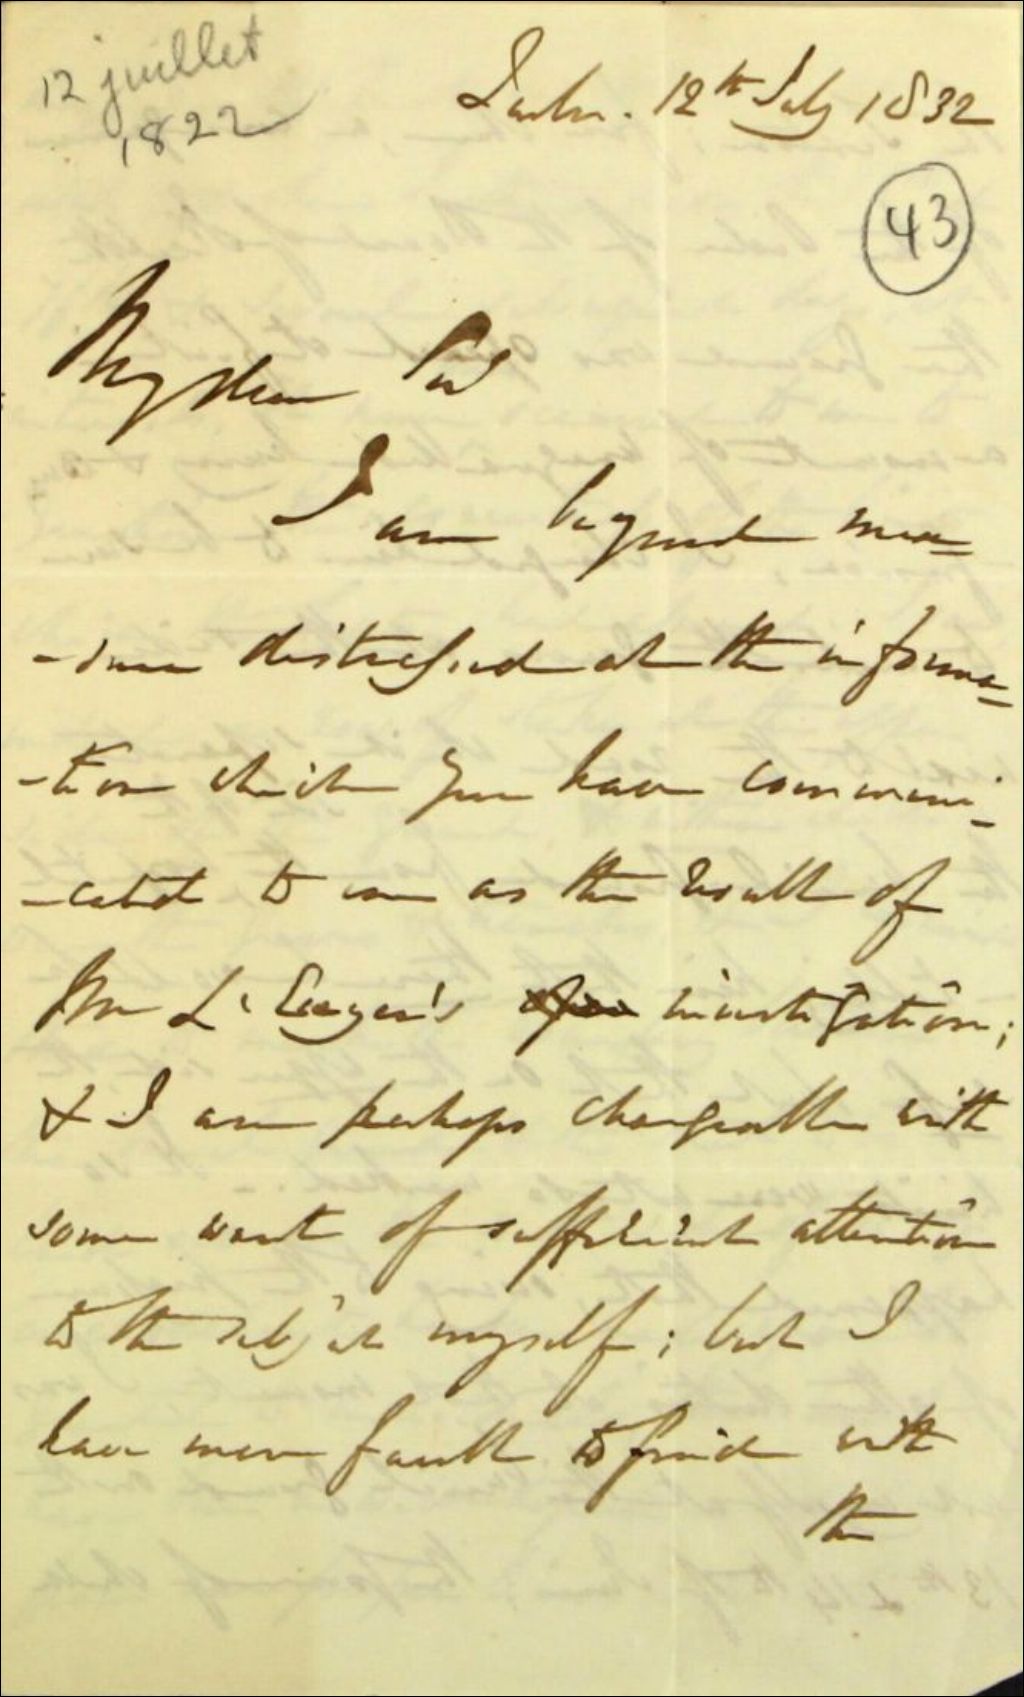 12 juillet
1822
12th July 1832
43
My dear Sir
I am beyond mea=
-sure distressed at the informa=
-tion which you have communi=
-cated to me as the result of
Mr investigation;
& I am perhaps chargeable with
some want of sufficient attention
to the subject myself; but I
have more fault to find with
the